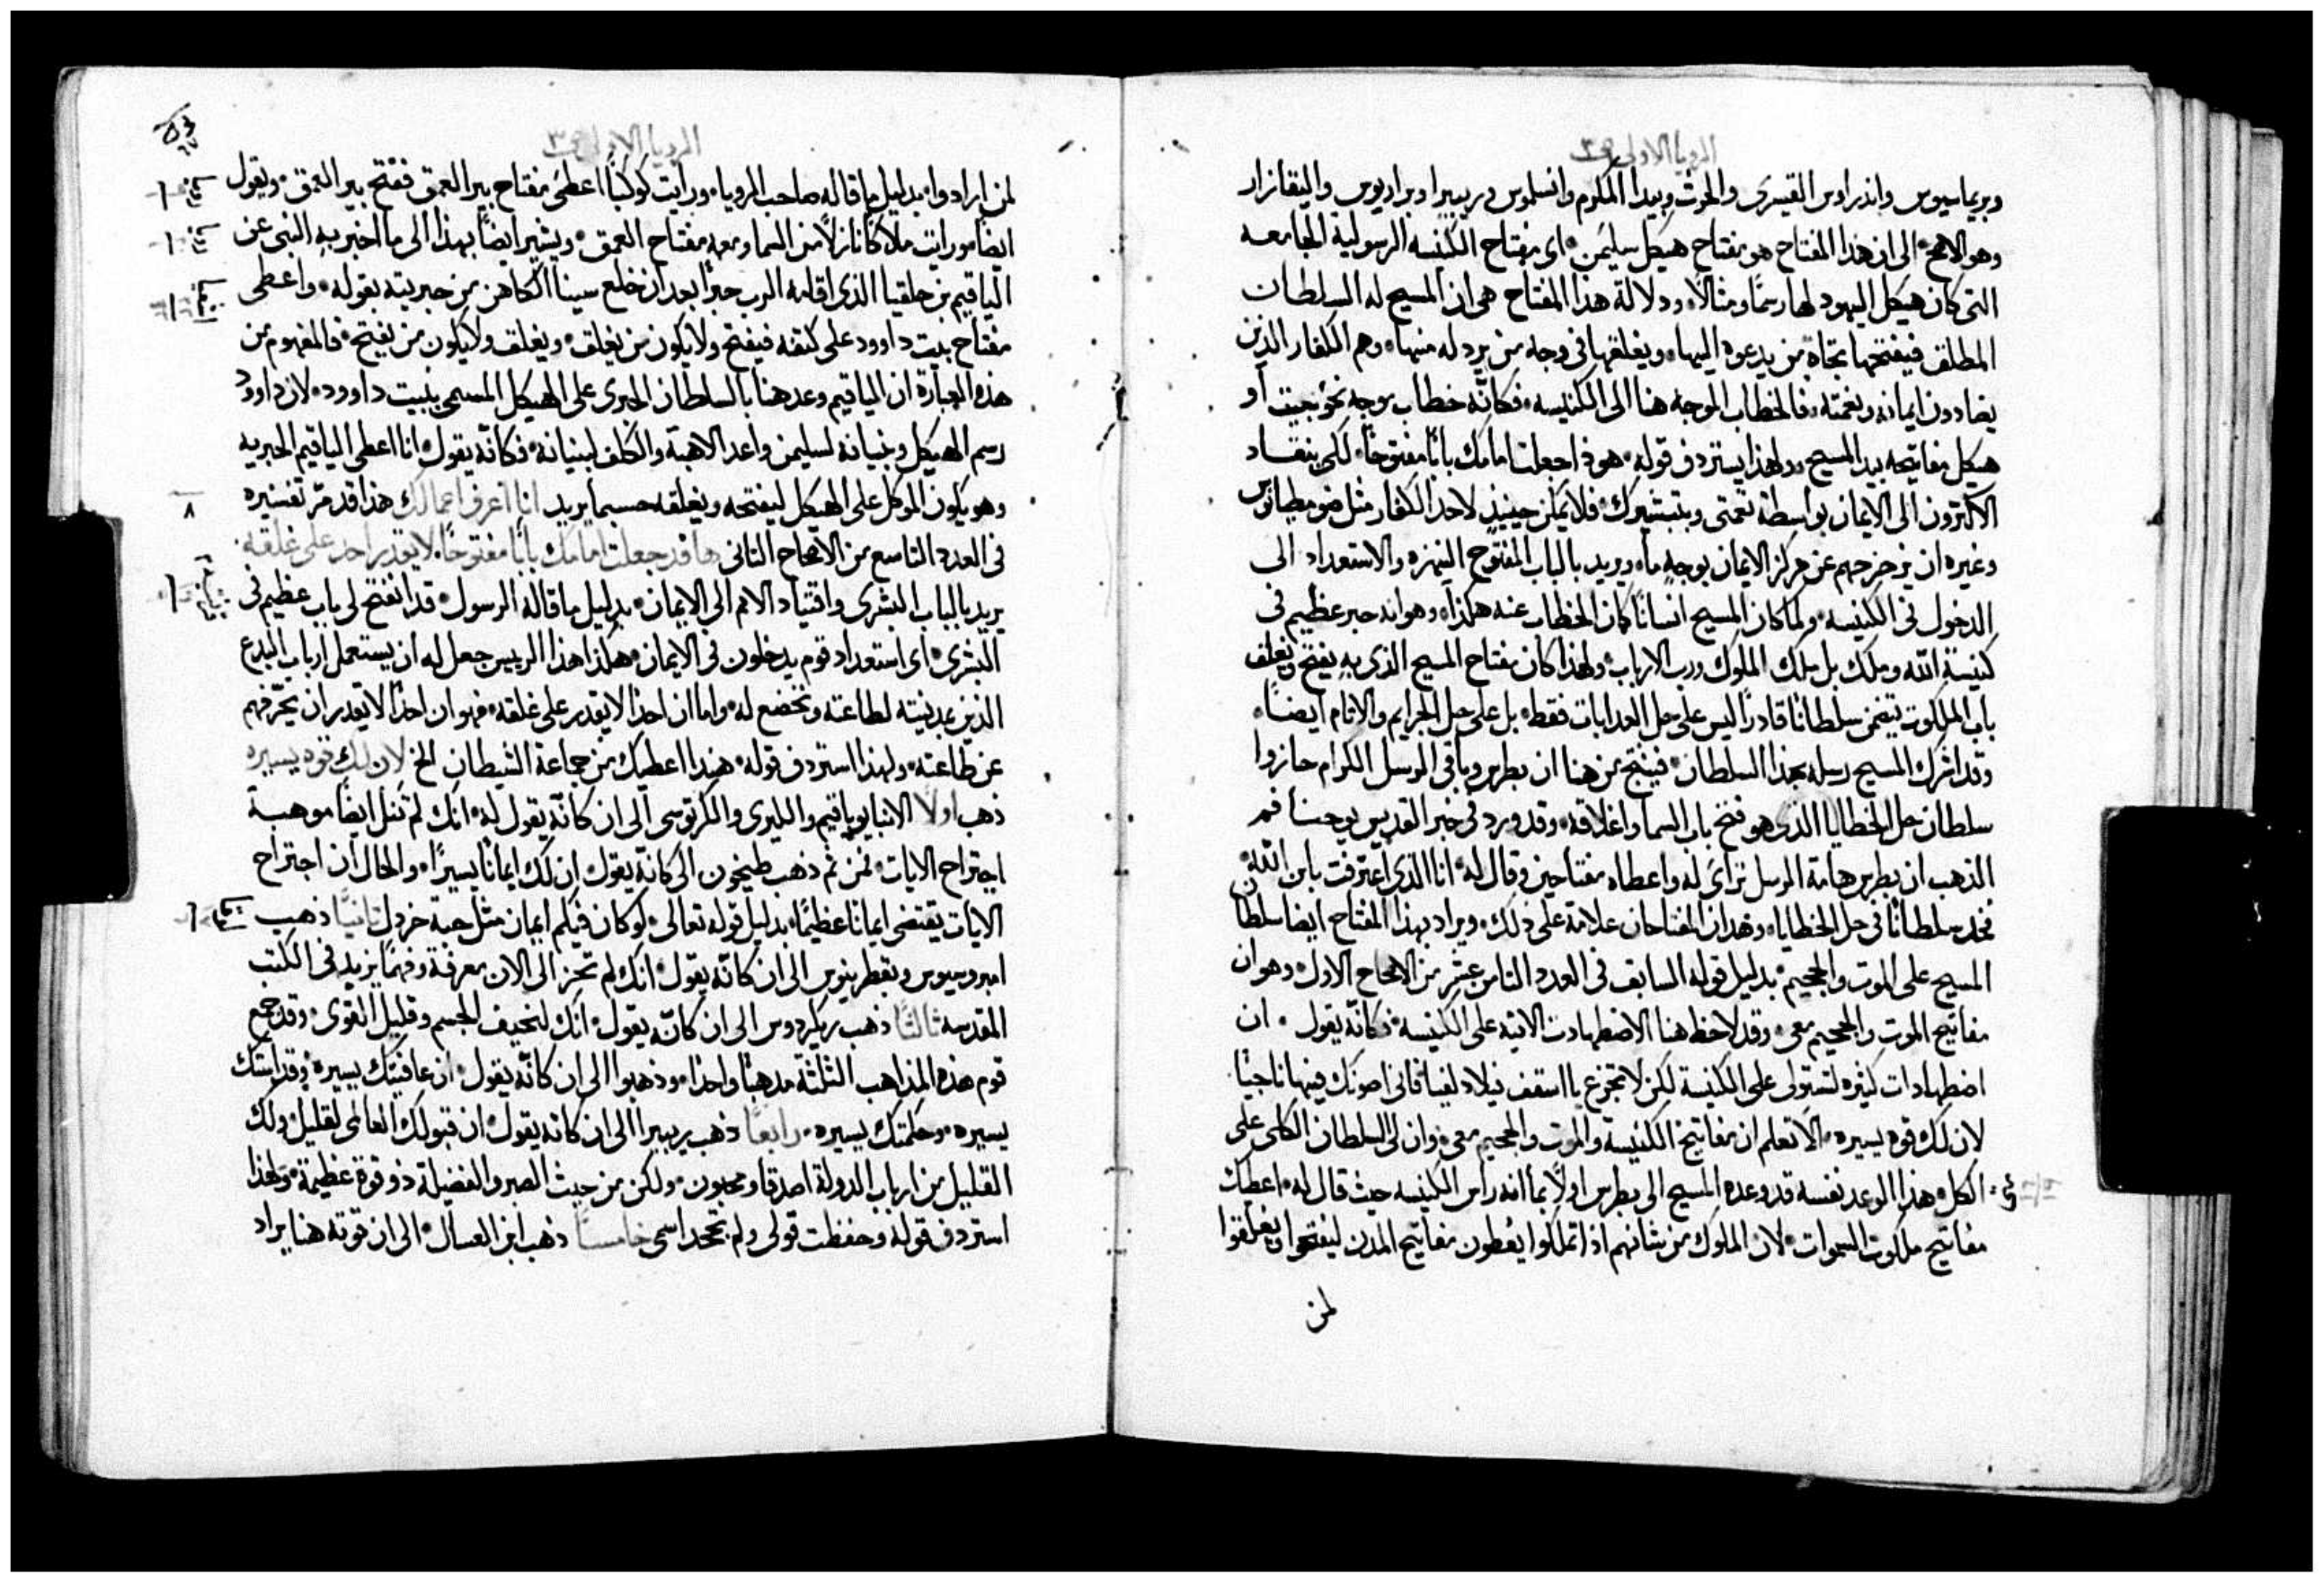 الرويا الاولى ص٣
وبريماسيوس واندراوس القيسرى والحوت وبيدا المكرم وانسلموس وريبيرا وبراديوس واليقازار
وهو الاصح الى ان هذا المفتاح هو مفتاح هيكل سليمن اى مفتاح الكنيسه الرسولية الجامعه
التى كان هيكل اليهود لها رسمًا ومثالًا ودلالة هذا المفتاح هى ان المسيح له السلطان
المطلق فيفتحها تجاه من يدعوه اليها ويغلقها فى وجه من يرذله منها وهم الكفار الذين
يضادون ايمانه ونعمته فالخطاب الموجه هنا الى الكنيسه فكانّه خطاب موجه نحو بيت او
هيكل مفاتيحه بيد المسيح ولهذا يستردف قوله هوذا جعلت امامك بابًا مفتوحًا لكى ينقاد
الاكثرون الى الايمان بواسطة نعمتى وبتبشيرك فلا يمكن حينيذ لاحد الكفار مثل ضوميطانوس
وغيره ان يزحزحهم عن مركز الايمان بوجه ما ويريد بالباب المفتوح النهزه والاستعداد الى
الدخول فى الكنيسه ولما كان المسيح انسانًا كان الخطاب عنه هكذا وهو انه حبر عظيم فى
كنيسة الله وملك بل ملك الملوك ورب الارباب ولهذا كان مفتاح المسيح الذى به يفتح ويغلق
باب الملكوت يتضمن سلطانًا قادرًا ليس على حل العذابات فقط بل على حل الجرايم والاثام ايضًا
وقد اشرك المسيح رسله بهذا السلطان فينتج من هنا ان بطرس وباقى الرسل الكرام حازوا
سلطان حل الخطايا الذى هو فتح باب السما واغلاقه وقد ورد فى خبر القديس يوحنا فم
الذهب ان بطرس هامة الرسل تراى له واعطاه مفتاحين وقال له انا الذى اعترفت بابن الله
فخذ سلطانًا فى حل الخطايا وهذان المفتاحان علامة على ذلك ويراد بهذا المفتاح ايضا سلطان
المسيح على الموت والجحيم بدليل قوله السابق فى العدد الثامن عشر من الاصحاح الاول وهو ان
مفاتيح الموت والجحيم معى وقد لاحظ هنا الاضطهادات الاتية على الكنيسه فكانّه يقول ان
اضطهادات كثيره لتستولى على الكنيسة لكن لا تجزع يا اسقف فيلادلفيا فانى اصونك فيها ناجيًا
لان لك قوه يسيره الا تعلم ان مفاتيح الكنيسة والموت والجحيم معى وان لى السلطان الكلى على
الكل هذا الوعد نفسه قد وعده المسيح الى بطرس اولًا بما انه راس الكنيسه حيث قال له اعطيك
مفاتيح ملكوت السموات لان الملوك من شانهم اذا تملكوا يعطون مفاتيح المدن ليفتحوا او يغلقوا
لمن
الرويا الاولى ص٣
لمن ارادوا بدليل ما قاله صاحب الرويا ورايت كوكبًا اعطى مفتاح بير العمق ففتح بير العمق ويقول
ايضًا ورايت ملاكًا نازلًا من السما ومعه مفتاح العمق ويشير ايضًا بهذا الى ما اخبر به النبى عن
الياقيم بن حلقيا الذى اقامه الرب حبرًا بعد ان خلع سبنا الكاهن من حبريته بقوله واعطى
مفتاح بيت داوود على كتفه فيفتح ولا يكون من يغلق ويغلق ولا يكون من يفتح فالمفهوم من
هذه العبارة ان الياقيم وعد هنا بالسلطان الحبرى على الهيكل المسمى ببيت داوود لان داوود
رسم الهيكل وبنيانه لسليمن واعد الاهبة والكلف لبنيانه فكانّه يقول انا اعطى الياقيم الحبريه
وهو يكون الموكل على الهيكل ليفتحه ويغلقه حسبما يريد انا اعرف اعمالك هذا قد مر تفسيره
٨
فى العدد التاسع من الاصحاح الثانى ها قد جعلت امامك بابًا مفتوحًا لا يقدر احد على غلقه
يريد بالباب البشرى واقتياد الامم الى الايمان بدليل ما قاله الرسول قد انفتح لى باب عظيم فى
البشرى اى استعداد قوم يدخلون فى الايمان هكذا هذا الرييس جعل له ان يستعمل ارباب البدع
الذين بمدينته لطاعته وتخضع له واما ان احدًا لا يقدر على غلقه فهو ان احدًا لا يقدر ان يحرّفهم
عن طاعته ولهذا استردف قوله هنذا اعطيك من جماعة الشيطان الخ لان لك قوه يسيره
ذهب اولًا الانبا يوياقيم والليرى والكرتوسى الى ان كانّه يقول له انك لم تنل ايضًا موهبة
اجتراح الايات فمن ثم ذهب طيخون الى كانّه يقول ان لك ايمانًا يسيرًا والحال ان اجتراح
الايات يقتضى ايمانًا عظيمًا بدليل قوله تعالى لو كان فيكم ايمان مثل حبة خردل ثانيًا ذهب
امبروسيوس وبقطرينوس الى ان كانّه يقول انك لم تحز الى الان معرفة وفهمًا يزيد فى الكتب
المقدسه ثالثًا ذهب ريكردوس الى ان كانّه يقول انك لنحيف الجسم وقليل القوى وقد جمع
قوم هذه المذاهب الثلثة مذهبًا واحدًا وذهبوا الى ان كانّه يقول ان عافيتك يسيره وقداستك
يسيره وحكمتك يسيره رابعًا ذهب ريبيرا الى ان كانه يقول ان قبولك العالمى لقليل ولك
القليل من ارباب الدولة اصدقا ومحبون ولكن من حيث الصبر والفضيلة ذو قوة عظيمة ولهذا
استردف قوله وحفظت قولى ولم تجحد اسمى خامسًا ذهب ابن العسال الى ان قوته هنا يراد